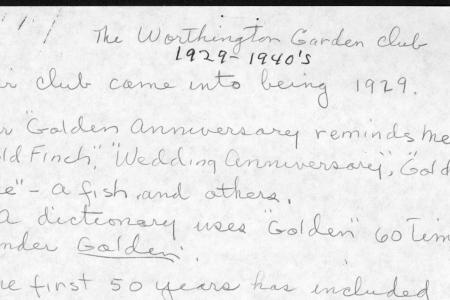 The Worthington Garden Club
1929-1940's
ir club came into being 1929.
r "Golden Anniversary reminds me
old Finch", "Wedding Anniversary", "Gold
e" - a fish and others.
A dictionary uses "Golden" 60 Tim
nder Golden.
e first 50 years has included